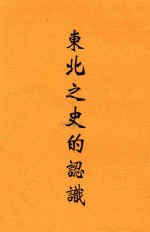 東北之史的認識